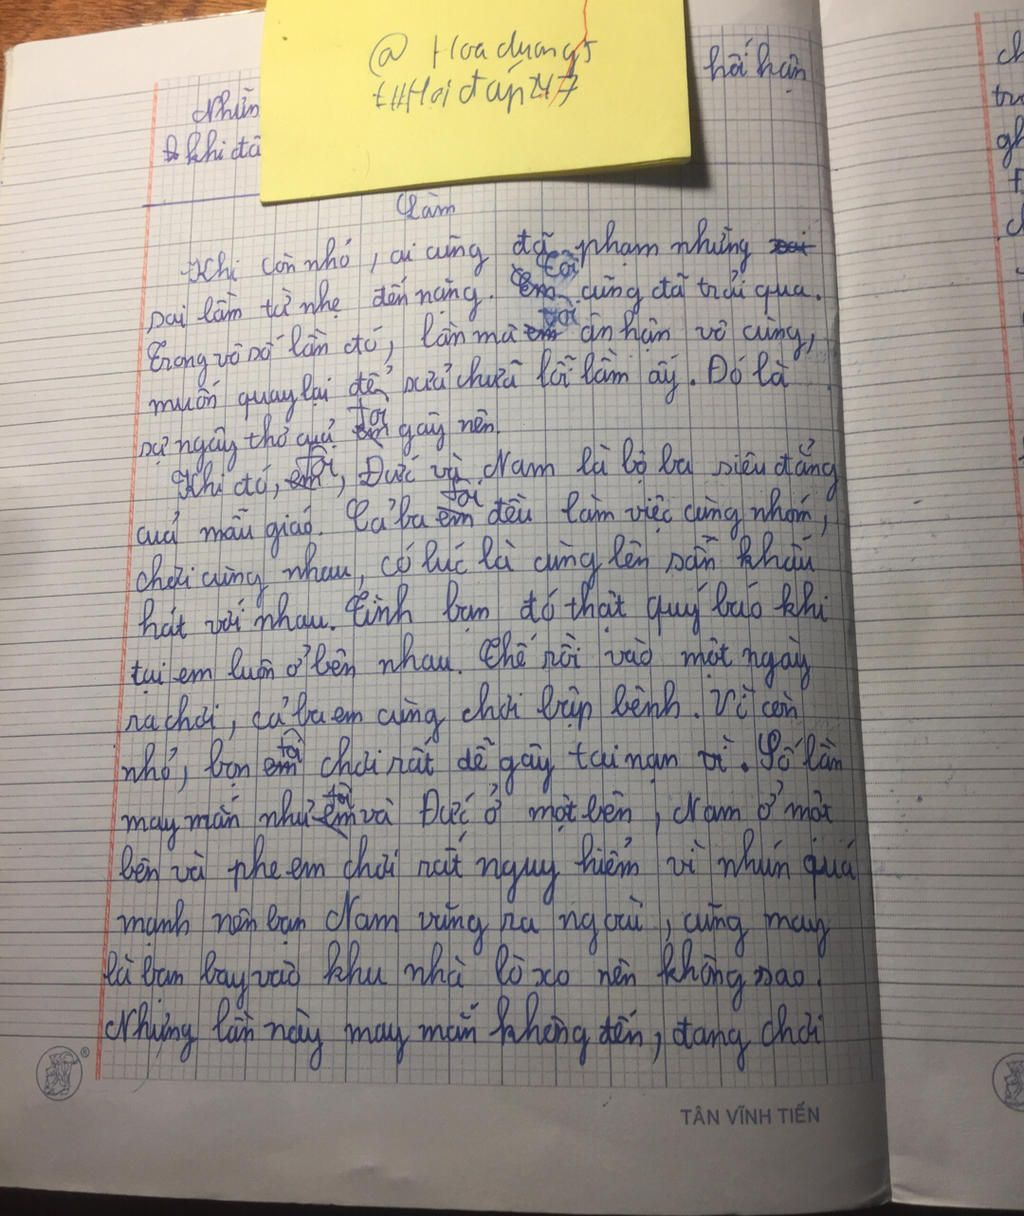 @ Hoaduong5
#Hoidap247
hối hận
Nhữn
khi đã
Làm
Khi còn nhỏ, ai cũng đã phạm những
sai lầm từ nhẹ đến nặng. tôi cũng đã trải qua.
Trong vô số lần đó, lần mà tôi ân hận vô cùng,
muốn quay lại để sửa chữa lỗi lầm ấy. Đó là
sự ngây thơ của tôi gây nên.
Khi đó, tôi, Đức và Nam là bộ ba siêu đẳng
của mẫu giáo. Cả ba tôi đều làm việc cùng nhóm,
chơi cùng nhau, có lúc là cùng lên sân khấu
hát với nhau. Tình bạn đó thật quý báo khi
tụi em luôn ở bên nhau. Thế rồi vào một ngày
ra chơi, cả ba em cùng chơi bập bênh. Vì còn
nhỏ, bọn tôi chơi rất dễ gây tai nạn vì. Số lần
may mắn như tôi và Đức ở một bên, Nam ở một
bên và phe em chơi rất nguy hiểm vì nhún quá
mạnh nên bạn Nam văng ra ngoài, cũng may
là bạn bay vào khu nhà lò xo nên không sao.
Nhưng lần này may mắn không đến, đang chơi
TÂN VĨNH TIẾN